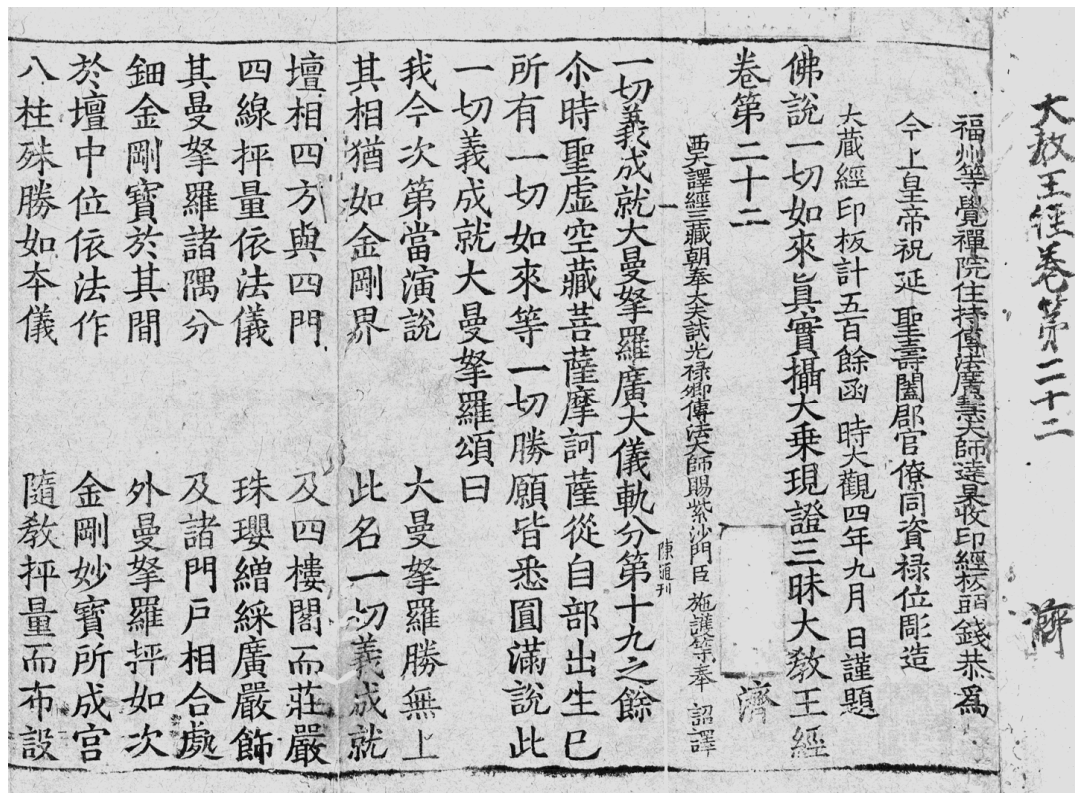 大教王經卷第二十二
濟
福州等覺禪院住持傳法廣慧大師達杲收印經板頭錢恭爲
今上皇帝祝延 聖壽闔郡官僚同資禄位彫造
大藏經印板計五百餘函 時大觀四年九月 日謹題
佛說一切如來真實攝大乗現證三昧大教王經
卷第二十二 濟
西天譯經三藏朝奉大夫試光禄卿傳法大師賜紫沙門臣 施護等奉 詔譯
一切義成就大曼拏羅廣大儀軌分第十九之餘
陳通刊
尒時聖虚空藏菩薩摩訶薩從自部出生已
所有一切如來等一切勝願皆悉圓滿說此
一切義成就大曼拏羅頌曰
我今次第當演說 大曼拏羅勝無上
其相猶如金剛界 此名一切義成就
壇相四方與四門 及四樓閣而莊嚴
四線抨量依法儀 珠瓔繒綵廣嚴飾
其曼拏羅諸隅分 及諸門戶相合處
鈿金剛寶於其間 外曼拏羅抨如次
於壇中位依法作 金剛妙寶所成宫
八柱殊勝如本儀 隨教抨量而布設